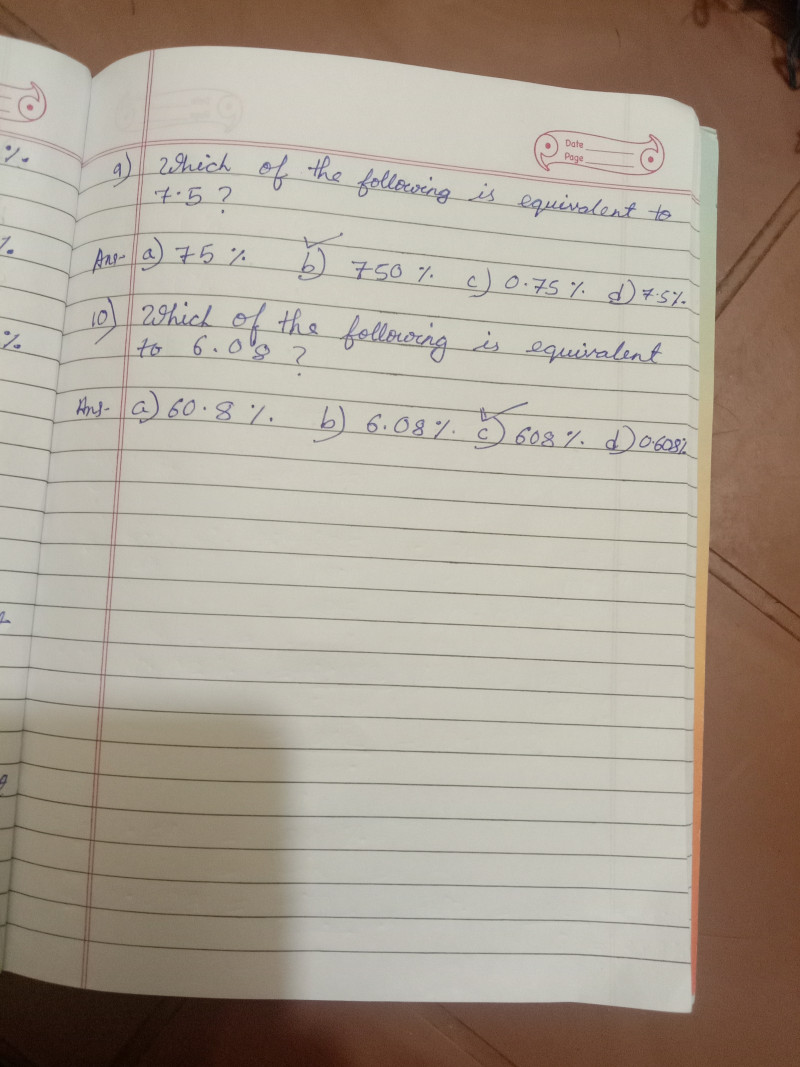 %.
%.
%.
Date
Page
9) Which of the following is equivalent to
7.5 ?
Ans- a) 75 %. b) 750 %. c) 0.75 %. d) 7.5%.
10) Which of the following is equivalent
to 6.08 ?
Ans- a) 60.8 %. b) 6.08 %. c) 608 %. d) 0.608%.